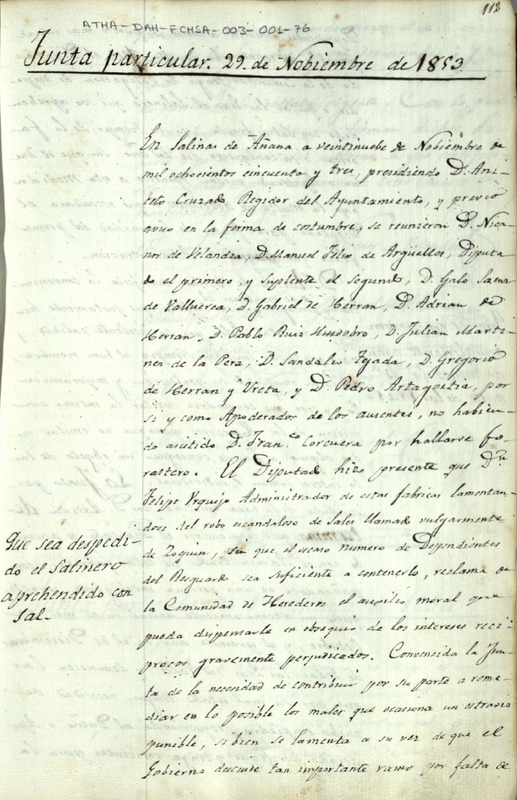 112
ATHA-DAH-FCHSA-003-001-76
Junta particular. 29. de Nobiembre de 1853
En Salinas de Añana a veintinuebe de Nobiembre de
mil ochocientos cincuenta y tres, presidiendo D. Ani-
ceto Cruzado Regidor del Ayuntamiento, y previo
aviso en la forma de costumbre, se reunieron D. Nica-
nor de Velandia, D. Manuel Felio de Argüelles, Diputa-
do el primero, y Suplente el segundo, D. Galo Saenz
de Valluerca, D. Gabriel de Herran, D. Adrian de
Herran, D. Pablo Ruiz Huidobro, D. Julian Marti-
nez de la Pera, D. Sandalio Tejada, D. Gregorio
de Herran y Ureta, y D. Pedro Artagoitia, por
si y como Apoderados de los ausentes, no habien-
do asistido D. Fran.co Corcuera por hallarse fo-
rastero. El Diputado hizo presente que D.n
Felipe Urquijo Administrador de estas fabricas lamentan-
dose del robo escandaloso de Sales llamado vulgarmente
de Zoquin, sin que el escaso numero de Dependientes
del Resguardo sea suficiente a contenerlo, reclama de
la Comunidad de Herederos el auxilio moral que
pueda dispensarle en obsequio de los intereses reci-
procos gravemente perjudicados. Convencida la Jun-
ta de la necesidad de contribuir por su parte a reme-
diar en lo posible los males que ocasiona un estravio
punible, si bien se lamenta a su vez de que el
Gobierno descuide tan importante ramo por falta de
Que sea despedi-
do el Salinero
aprehendido con
sal.